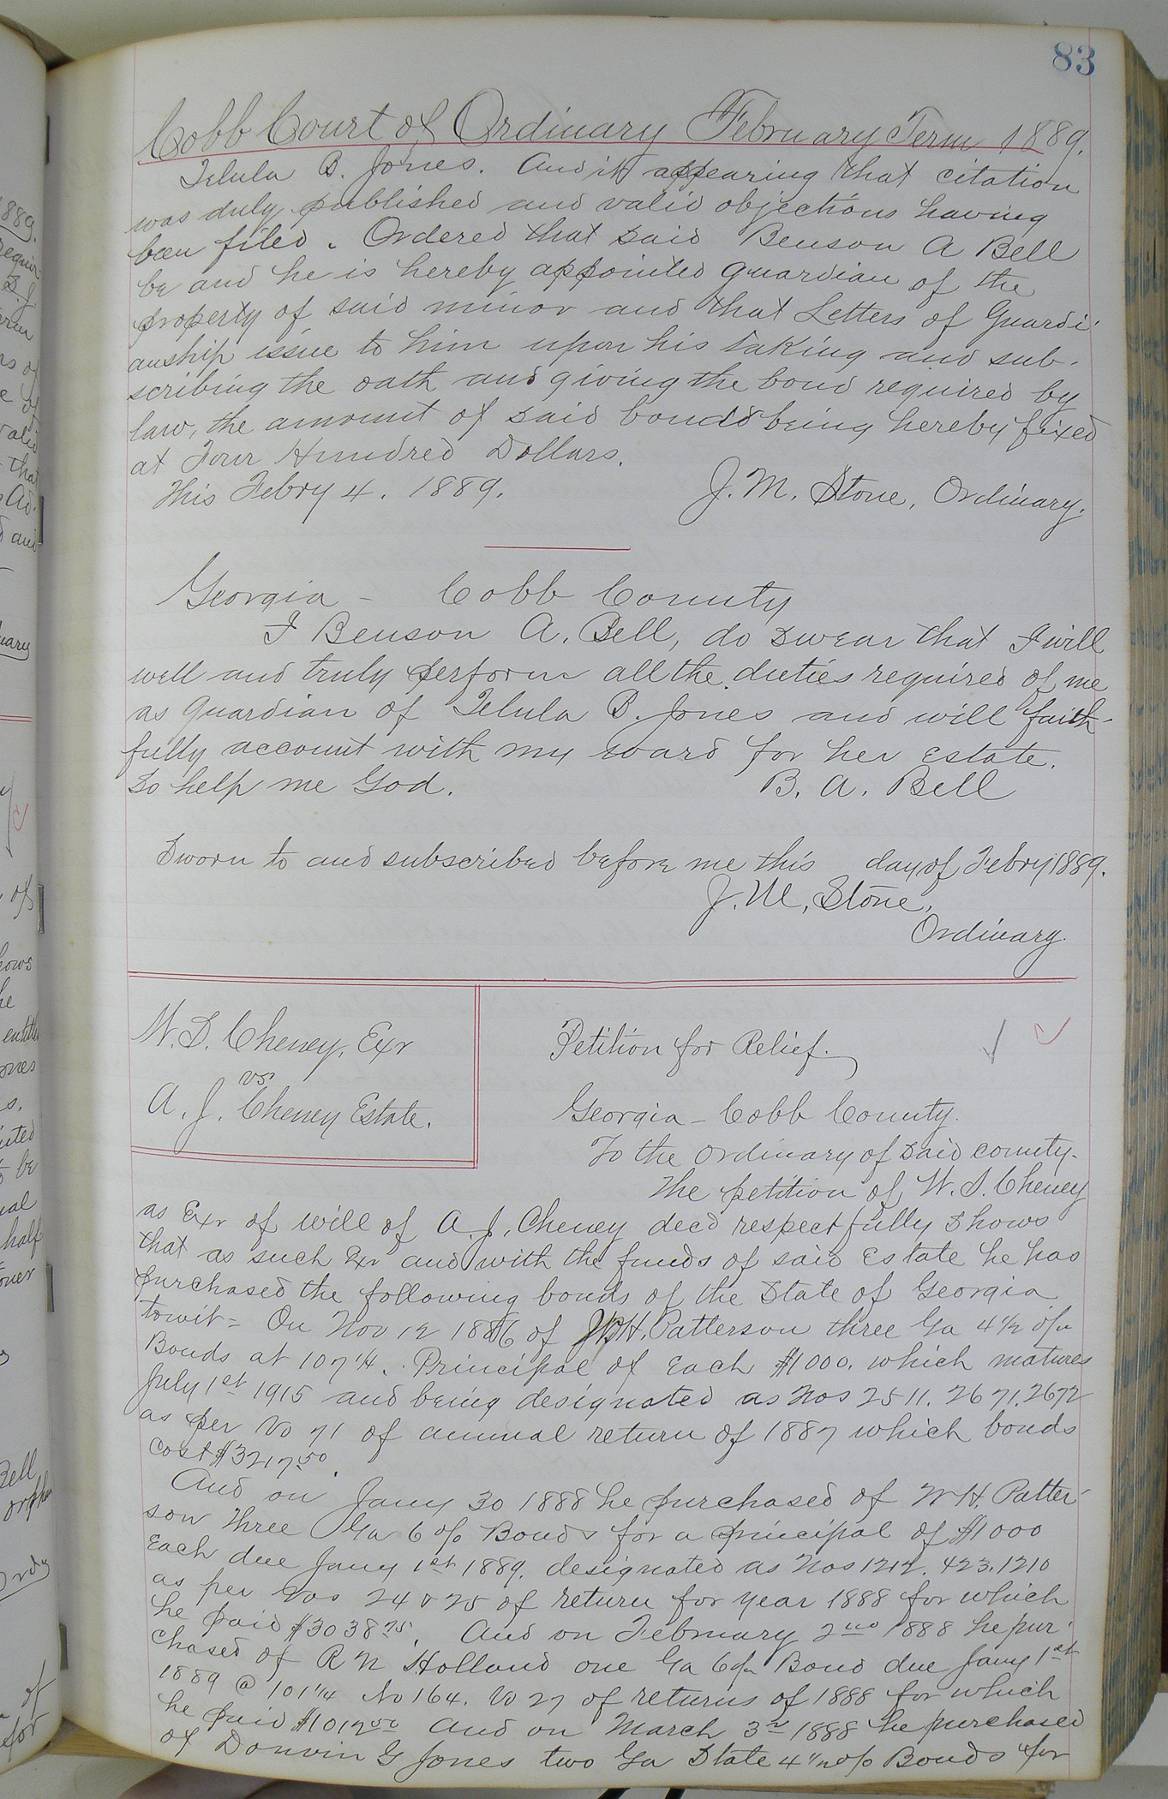 83
Cobb Court of Ordinary February Term 1889.
Telula B. Jones. And it appearing that citation
was duly published and valid objections having
been filed. Ordered that said Benson A Bell
be and he is hereby appointed guardian of the
property of said minor and that Letters of Guardi-
anship issue to him upon his taking and sub-
scribing the oath and giving the bond required by
law, the amount of said bond being hereby fixed
at Four Hundred Dollars.
This Febry 4. 1889. J. M. Stone, Ordinary.
Georgia - Cobb County
I Benson A. Bell, do swear that I will
well and truly perform all the duties required of me
as Guardian of Telula B. Jones and will faith-
fully account with my ward for her Estate.
So help me God. B. A. Bell
Sworn to and subscribed before me this day of Febry 1889.
J. M. Stone,
Ordinary.
W. S. Cheney, Exr
vs
A. J. Cheney Estate.
Petition for Relief.
Georgia - Cobb County.
To the Ordinary of said county.
The petition of W. S. Cheney
as Exr of will of A. J. Cheney decd respectfully shows
that as such Exr and with the funds of said Estate he has
purchased the following bonds of the State of Georgia
towit = On Nov 12 1886 of H. Patterson three Ga 4½ o/o
Bonds at 107¼. Principal of Each $1000. which matures
July 1st 1915 and being designated as Nos 2511. 2671. 2672
as per Vo 71 of annual return of 1887 which bonds
cost $3217.50.
And on Jany 30 1888 he purchased of W H. Patter-
son three Ga 6 o/o Bonds for a principal of $1000
Each due Jany 1st 1889. designated as Nos 1212. 423. 1210
as per Vos 24 & 25 of return for year 1888 for which
he paid $3038.75. And on February 2nd 1888 he pur-
chased of R N Holland one Ga 6 o/o Bond due Jany 1st
1889 @ 101¼ No 164. Vo 27 of returns of 1888 for which
he paid $1012.50 And on March 3rd 1888 he purchased
of Donvin G Jones two Ga State 4½ o/o Bonds for